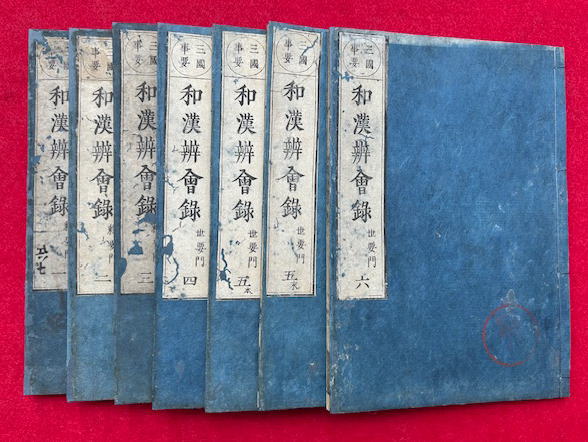 事要
和漢辨會錄
一
事要
和漢辨會錄
二
三國
事要
和漢辨會錄
三
三國
事要
和漢辨會錄
四
三國
事要
和漢辨會錄
世要門
五本
三國
事要
和漢辨會錄
世要門
五末
三國
事要
和漢辨會錄
世要門
六